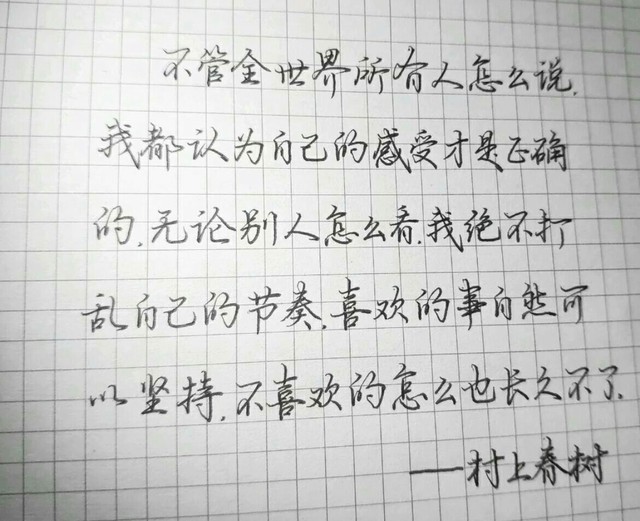 不管全世界所有人怎么说,
我都认为自己的感受才是正确
的.无论别人怎么看.我绝不打
乱自己的节奏.喜欢的事自然可
以坚持.不喜欢的怎么也长久不了.
——村上春树